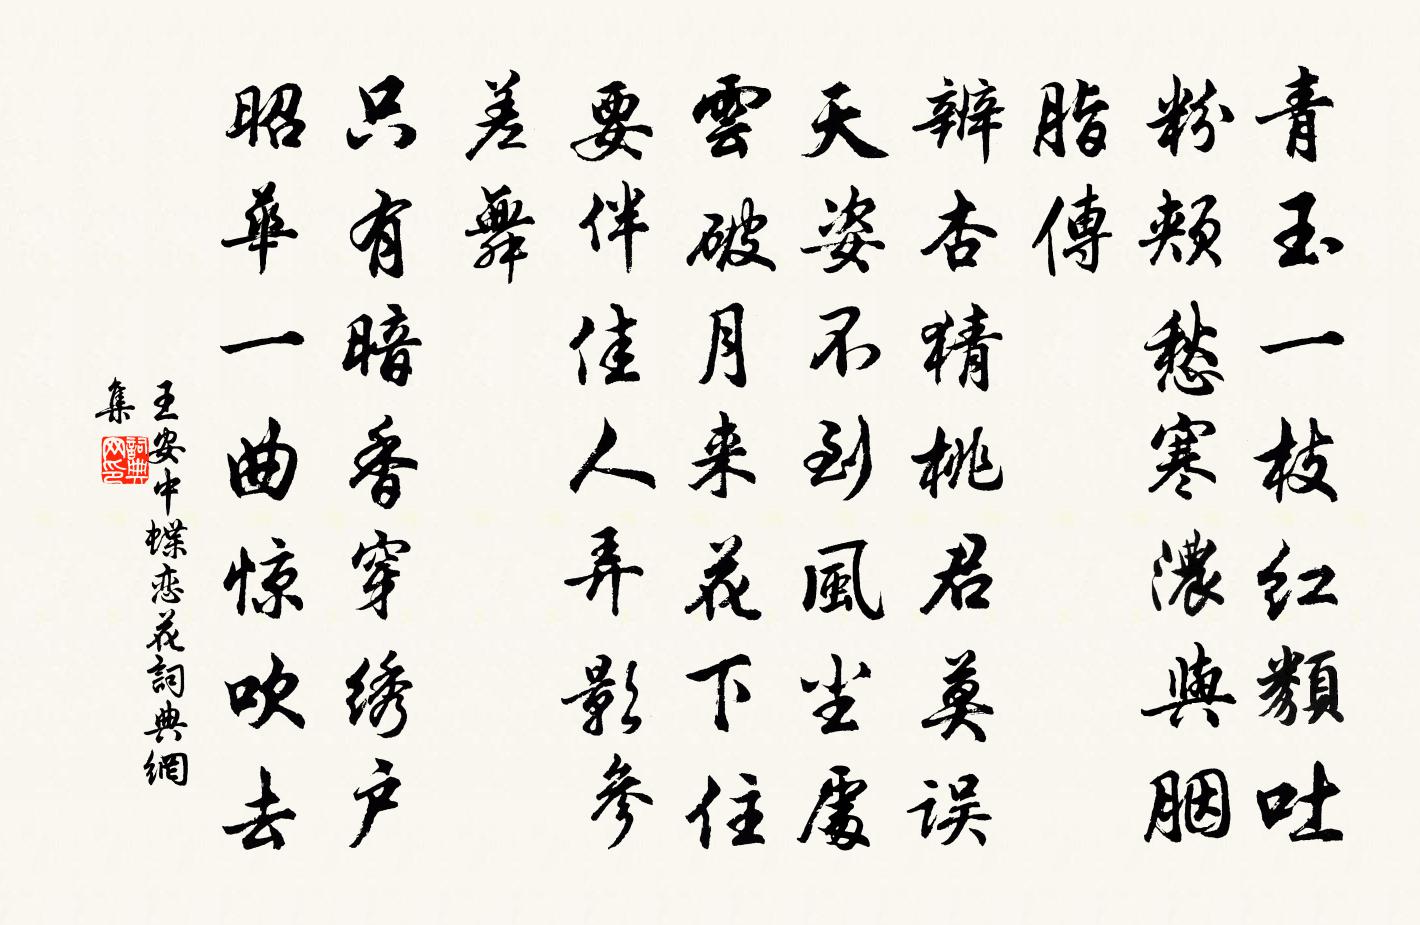 青玉一枝红類吐
粉頰愁寒濃與胭
脂傳
辨杏猜桃君莫误
天姿不到風尘處
雲破月来花下住
要伴佳人弄影參
差舞
只有暗香穿绣户
昭華一曲惊吹去
王安中蝶恋花詞典網
集
詞典
网印